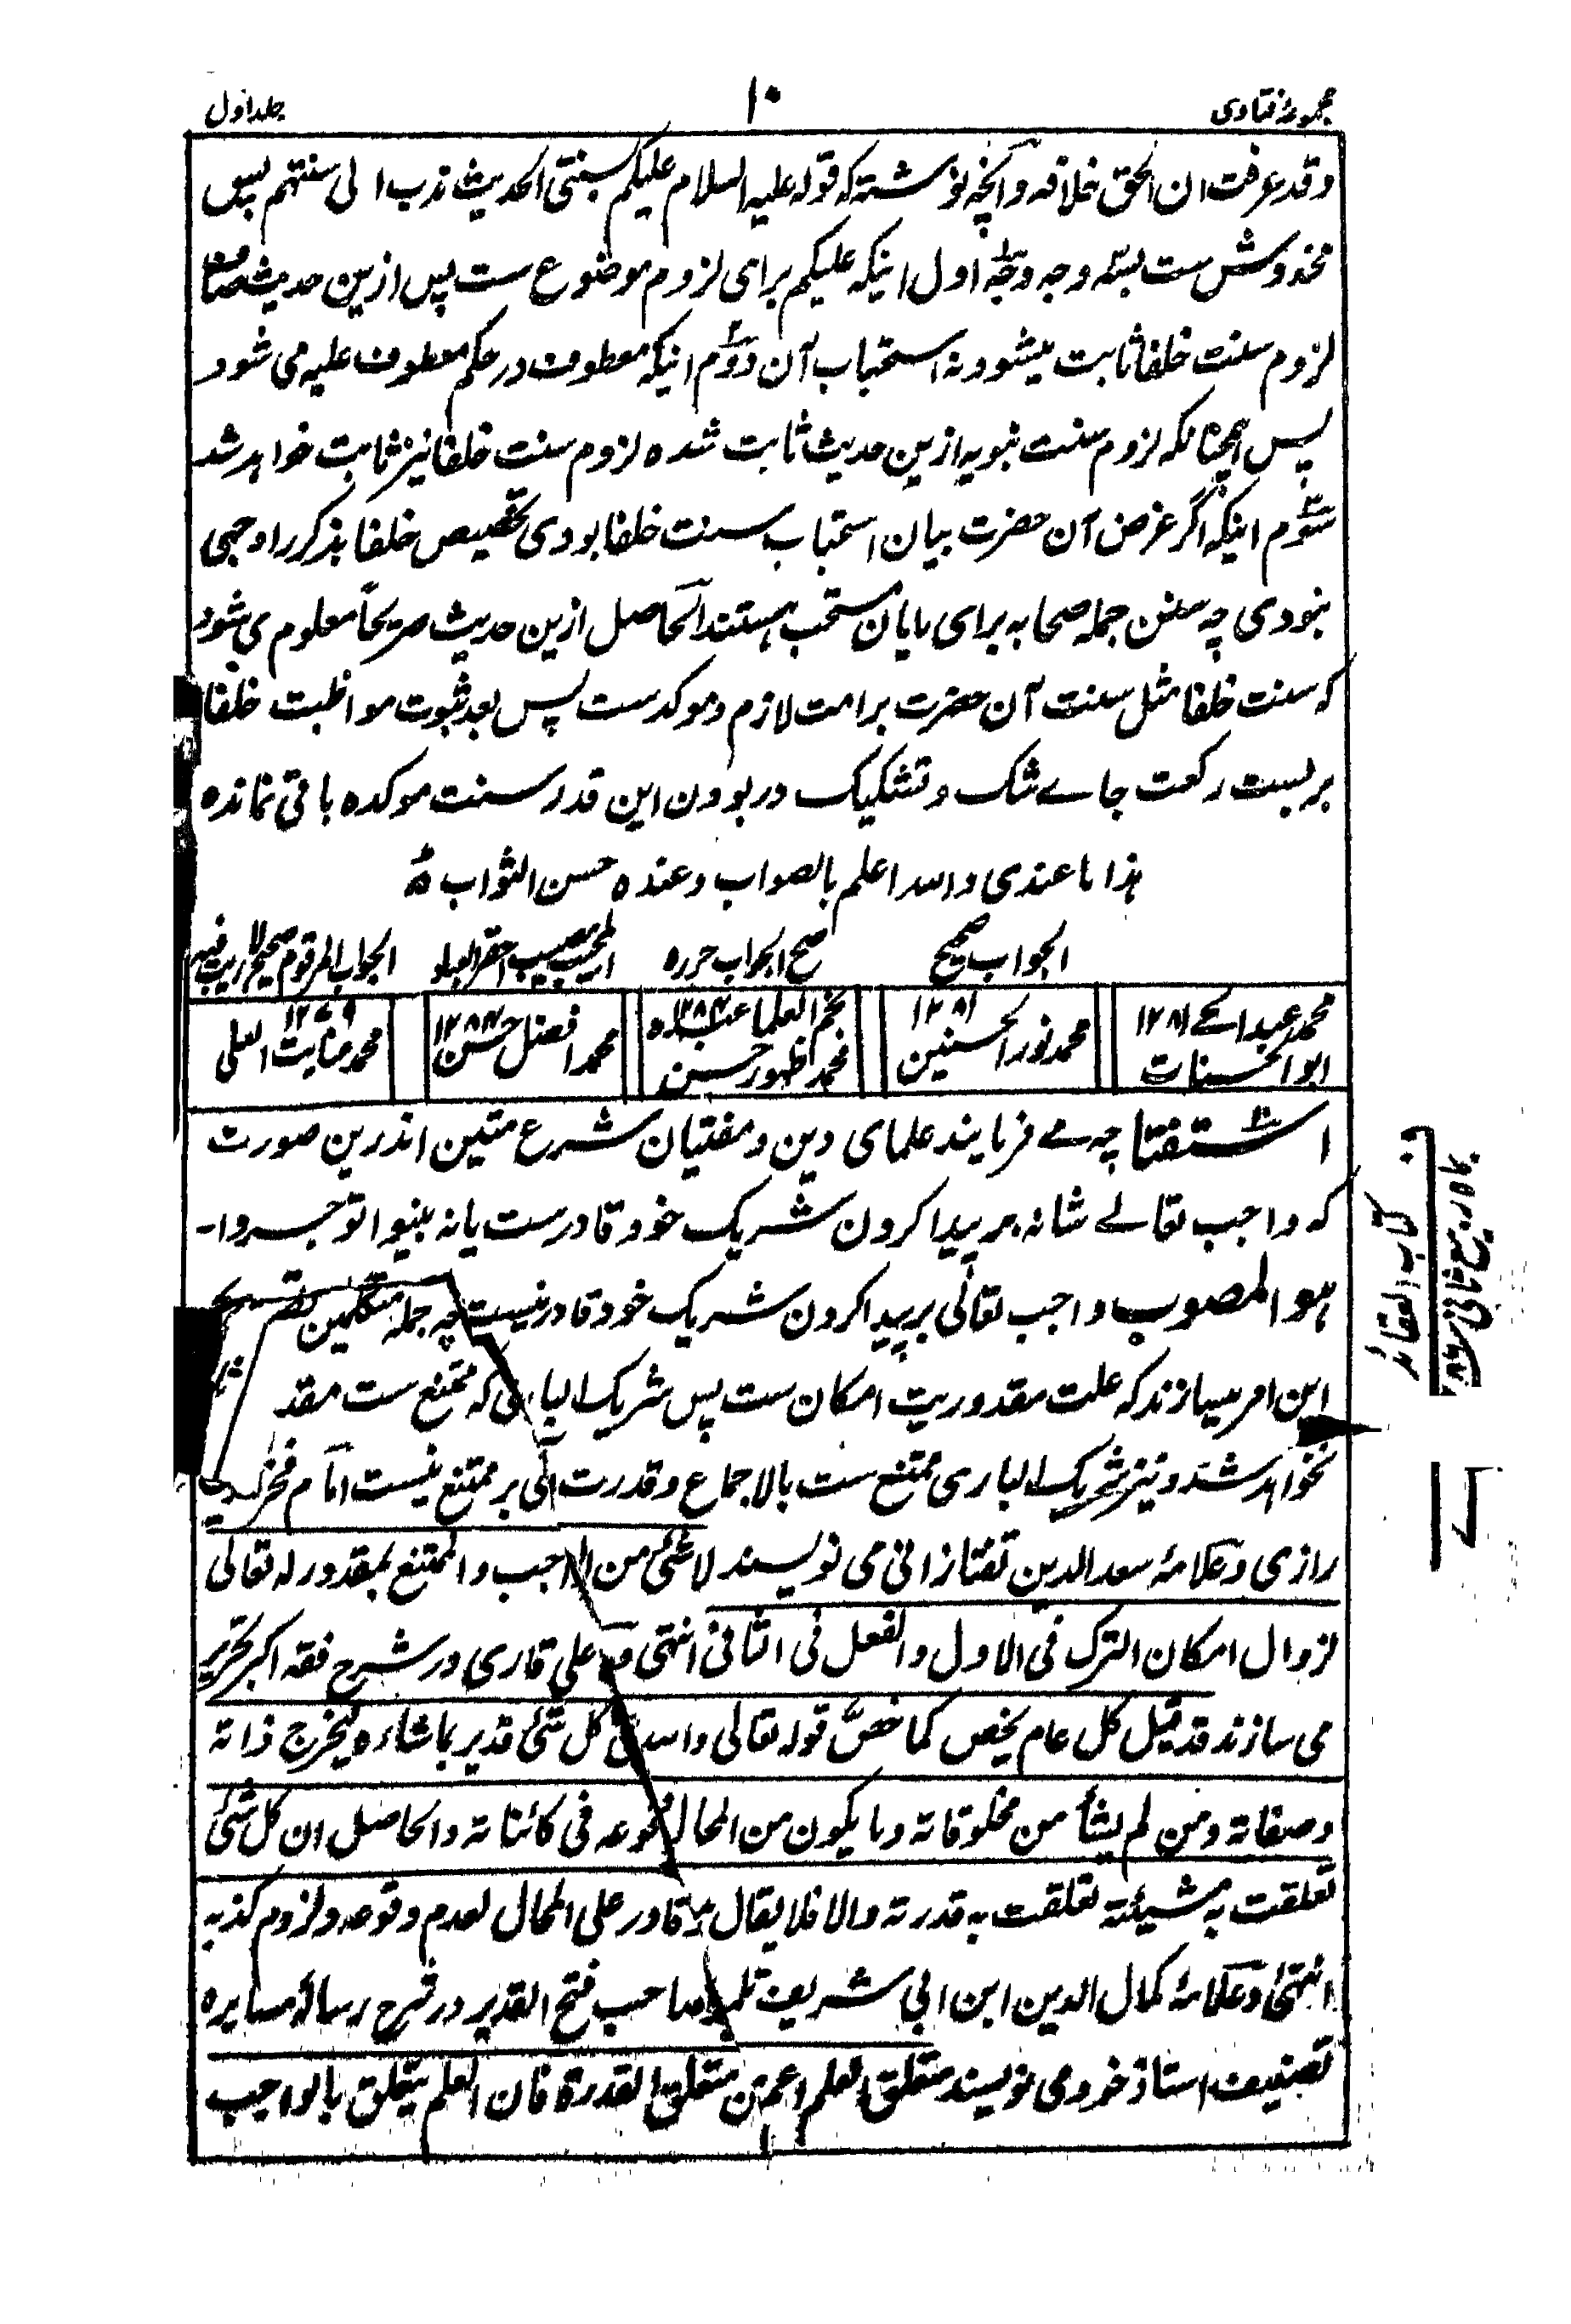 مجموعۂ فتاوی
۱۰
جلد اول
وقد عرفت ان الحق خلافہ وآنچہ نوشتہ کہ قولہ علیہ السلام علیکم بسنتی الحدیث ندب الی سنتہم پس
مخدوش ست بسہ وجہ وجہ اول اینکہ علیکم برای لزوم موضوع ست پس ازین حدیث صاف
لزوم سنت خلفا ثابت میشود نہ استحباب آن دوم اینکہ معطوف در حکم معطوف علیہ می شود
پس ہمچنانکہ لزوم سنت نبویہ ازین حدیث ثابت شدہ لزوم سنت خلفا نیز ثابت خواہد شد
سوم اینکہ اگر غرض آن حضرت بیان استحباب سنت خلفا بودی تخصیص خلفا بذکر را وجہی
نبودی چہ سنن جملہ صحابہ برای مایان مستحب ہستند الحاصل ازین حدیث صریحاً معلوم می شود
کہ سنت خلفا مثل سنت آن حضرت بر امت لازم و موکد ست پس بعد ثبوت مواظبت خلفا
بر بست رکعت جاے شک و تشکیک در بودن این قدر سنت موکدہ باقی نماندہ
ہذا ما عندی واللہ اعلم بالصواب وعندہ حسن الثواب
الجواب صحیح
صح الجواب حررہ
المجیب مصیب احقر العباد
الجواب المرقوم صحیح لا ریب فیہ
محمد عبد الحے ۱۲۸۱ ابو الحسنات
۱۲۸۱ محمد نور الحسنین
نجم العلما محمد ظہور حسین
محمد افضل حسن
۱۲۷۹ محمد عنایت العلی
استفتا چہ مے فرمایند علمای دین و مفتیان شرع متین اندرین صورت
کہ واجب تعالے شانہ بر پیدا کردن شریک خود قادرست یا نہ بینوا توجروا۔
ہو المصوب واجب تعالی بر پیدا کردن شریک خود قادر نیست چہ جملہ متکلمین تصریح
این امر میسازند کہ علت مقدوریت امکان ست پس شریک الباری کہ ممتنع ست مقد
نخواہد شد و نیز شریک الباری ممتنع ست بالاجماع و قدرت الٰہی بر ممتنع نیست امام فخر الدین
رازی و علامۂ سعد الدین تفتازانی می نویسند لا شئ من الواجب والممتنع بمقدور لہ تعالی
لزوال امکان الترک فی الاول والفعل فی الثانی انتہی و علی قاری در شرح فقہ اکبر تحریر
می سازند قد قیل کل عام یخص کما خص قولہ تعالی واللہ علی کل شئ قدیر بما شاءہ لیخرج ذاتہ
وصفاتہ ومن لم یشأ من مخلوقاتہ وما یکون من المحال وقوعہ فی کائناتہ والحاصل ان کل شئ
تعلقت بہ مشیئتہ تعلقت بہ قدرتہ والا فلا یقال قادر علی المحال لعدم وقوعہ ولزوم کذبہ
انتہی و علامۂ کمال الدین ابن ابی شریف تلمیذ صاحب فتح القدیر در شرح رسالۂ مسایرہ
تصنیف استاذ خود می نویسند متعلق العلم اعم من متعلق القدرۃ فان العلم یتعلق بالواجب
کتاب العقائد